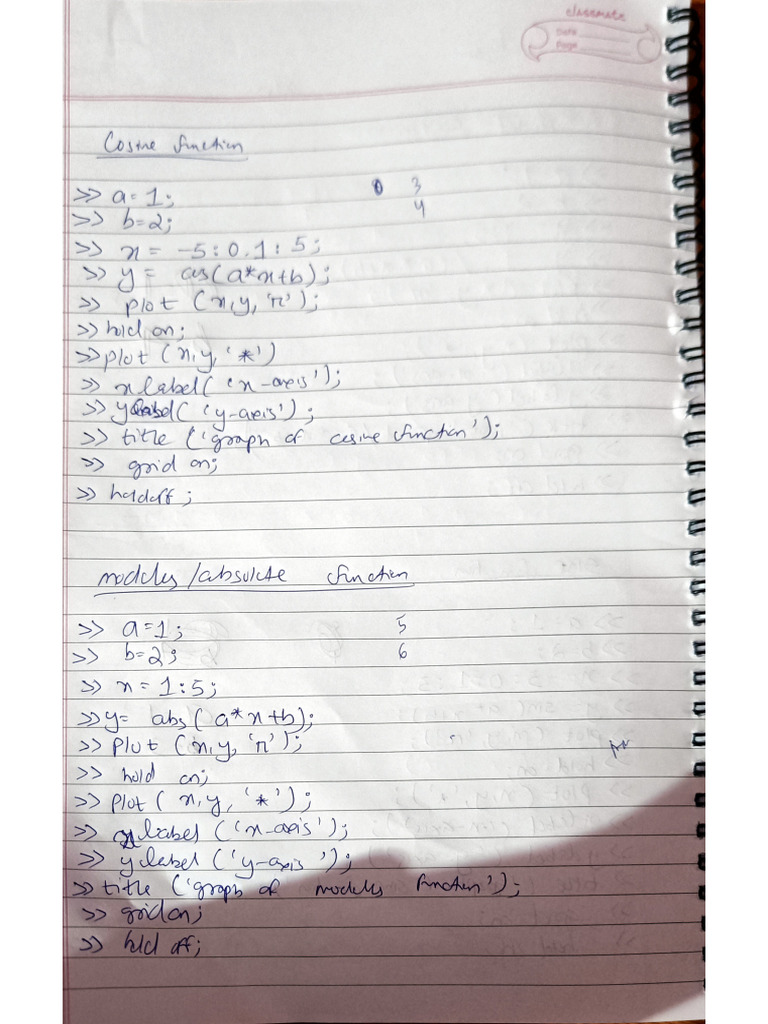 classmate
Date
Page
Cosine function
>> a=1; 0 3
4
>> b=2;
>> x = -5:0.1:5;
>> y = cos(a*x+b);
>> plot (x,y,'r');
>> hold on;
>> plot (x,y,'*')
>> xlabel('x-axis');
>> ylabel('y-axis');
>> title ('graph of cosine function');
>> grid on;
>> holdoff;
modules/absolute function
>> a=1; 5
>> b=2; 6
>> x=1:5;
>> y= abs(a*x+b);
>> plot (x,y,'r');
>> hold on;
>> plot(x,y,'*');
>> xlabel('x-axis');
>> ylabel('y-axis');
>> title ('graph of modules function');
>> grid on;
>> hold off;